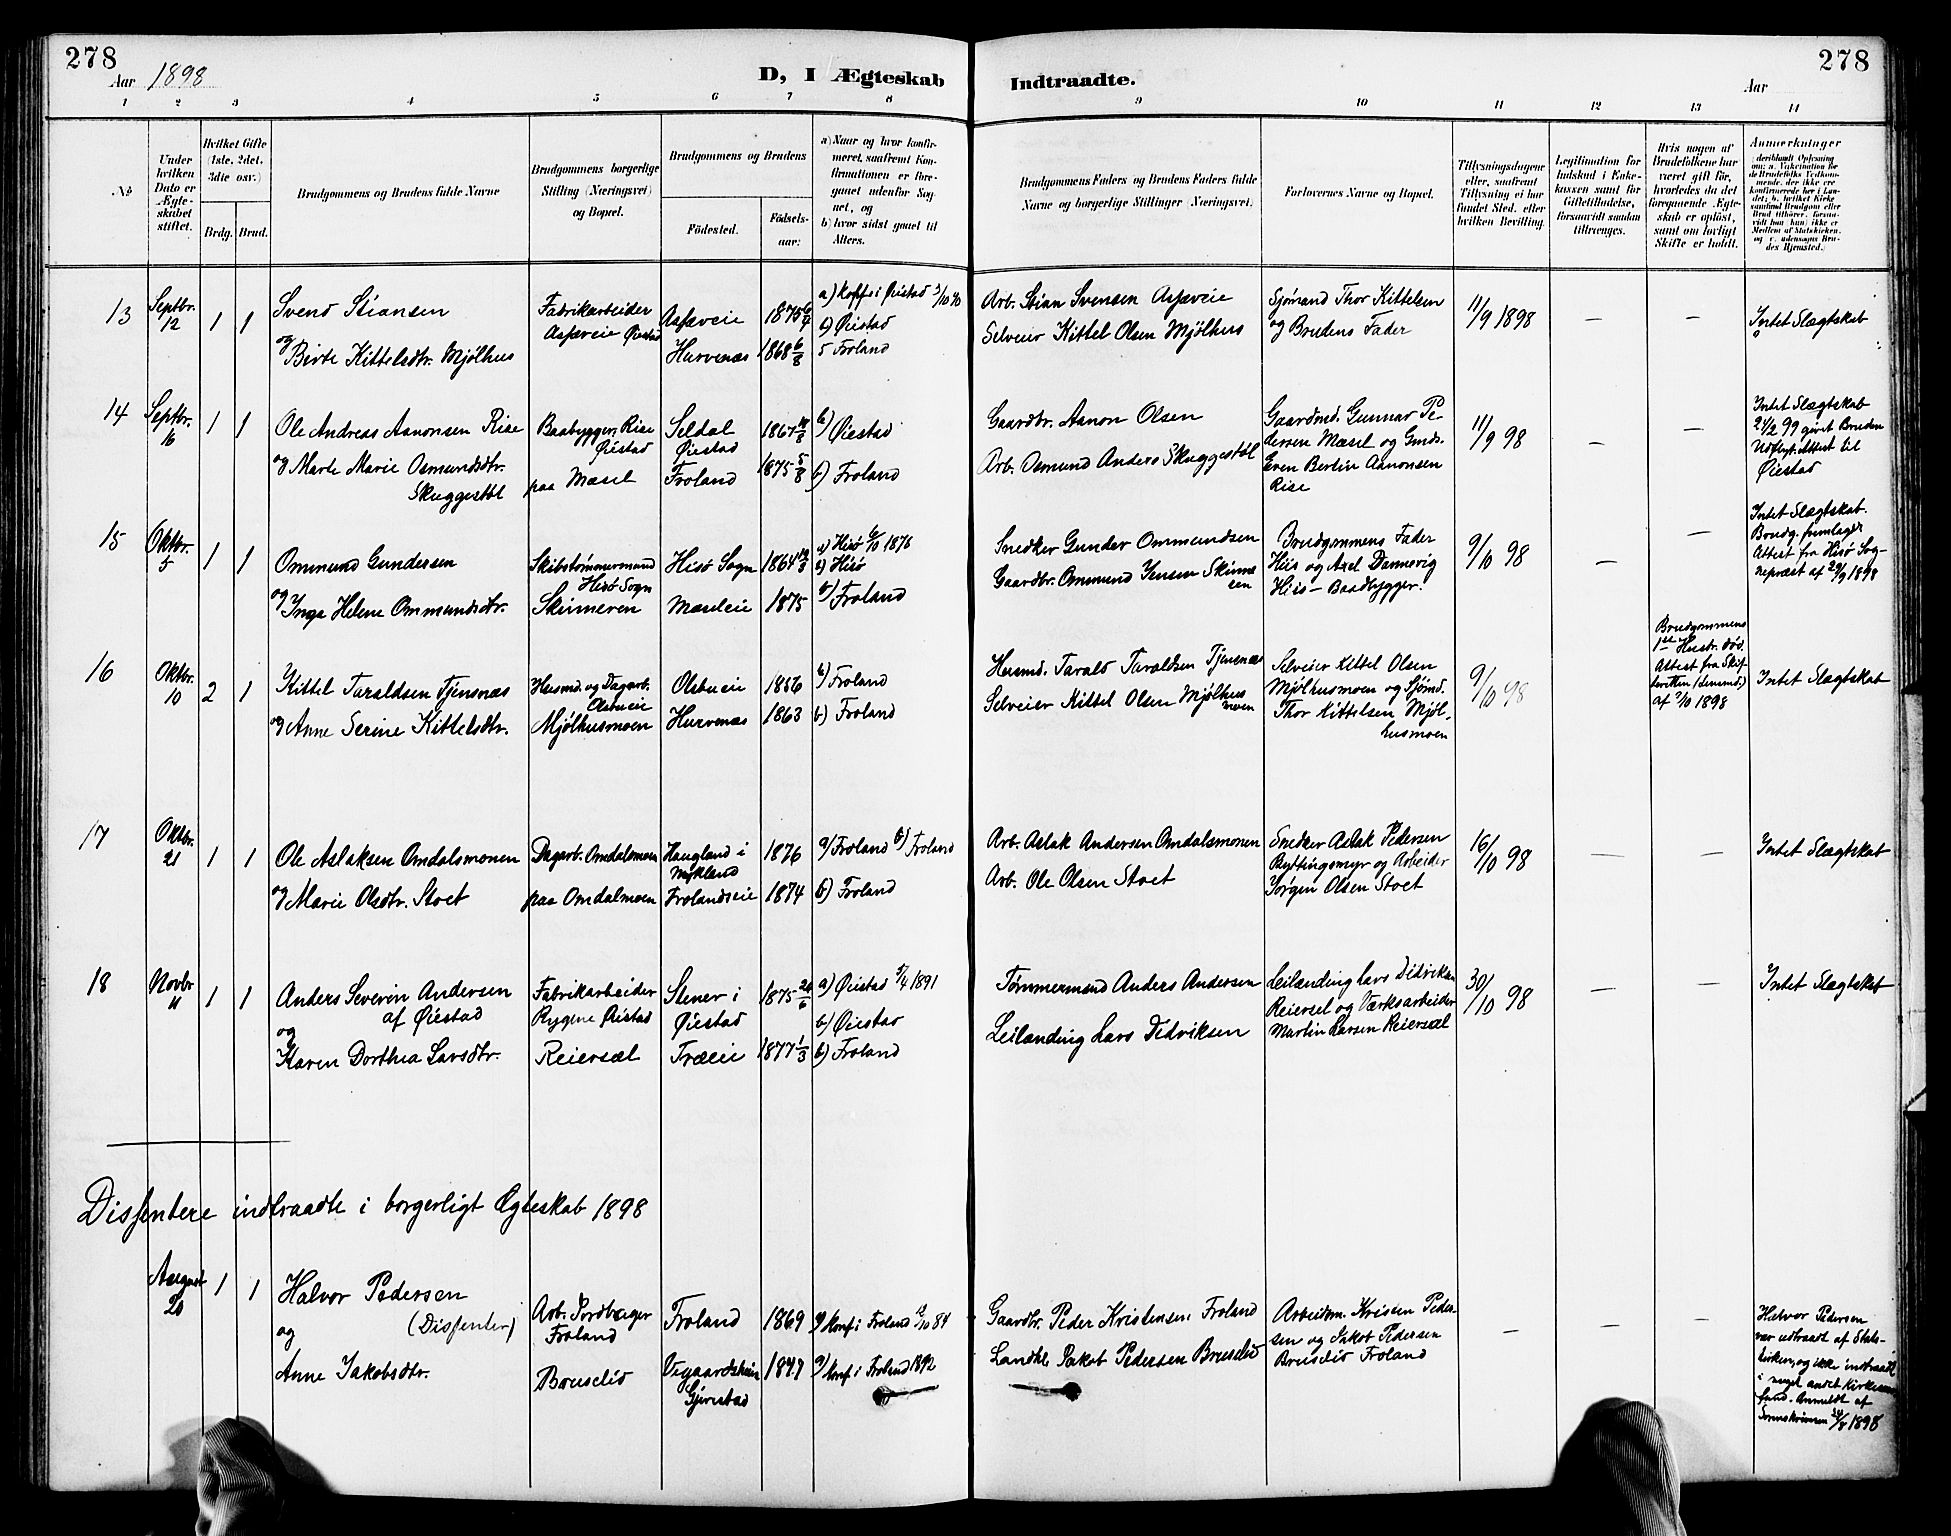 278
278
Aar 1898
D, I Ægteskab Indtraadte.
Aar
1 2 3 4 5 6 7 8 9 10 11 12 13 14
No
Under hvilken Dato er Ægteskabet stiftet.
Hvilket Gifte (1ste, 2det, 3die osv.)
Brdg. Brud.
Brudgommens og Brudens fulde Navne
Brudgommens borgerlige Stilling (Næringsvei) og Bopæl.
Brudgommens og Brudens
Fødested.
Fødselsaar:
a) Naar og hvor konfirmeret, saafremt Konfirmationen er foregaaet udenfor Sognet, og
b) hvor sidst gaaet til Alters.
Brudgommens Faders og Brudens Faders fulde Navne og borgerlige Stillinger (Næringsvei)
Forlovernes Navne og Bopæl.
Tillysningsdagene eller, saafremt Tillysning ei har fundet Sted, efter hvilken Bevilling.
Legitimation for Indskud i Enkekassen samt for Giftetilladelse, forsaavidt saadan tiltrænges.
Hvis nogen af Brudefolkene har været gift før, hvorledes da det foregaaende Ægteskab er opløst, samt om lovligt Skifte er holdt.
Anmærkninger (deriblandt Oplysning om: a. Vakcination for de Brudefolks Vedkommende, der ikke ere konfirmerede her i Landet; b. hvilket Kirkesamfund Brudgom eller Brud tilhører, forsaavidt han (hun) ikke er Medlem af Statskirken, og c. udensogns Brudes Hjemsted.)
13 Septbr. 12 1 1
Svend Stiansen
og Birte Kittelsdtr. Mjølhus
Fabrikarbeider
Asfaveie Øiestad
Asfaveie
Hurvenæs
1875 6/4
1868 6/8
a) Konf. i Øiestad 5/10 90
b) Øiestad
b Froland
Arb. Stian Svensen Asfaveie
Selveier Kittel Olsen Mjølhus
Sjømand Thor Kittelsen
og Brudens Fader
11/9 1898
—
—
Intet Slægtskab
14 Septbr. 16 1 1
Ole Andreas Aanonsen Rise
og Marte Marie Osmundsdtr.
Skuggestøl
Baabygger, Rise
Øiestad
paa Mæsel
Seldal
Øiestad
Froland
1867
1875 5/8
b) Øiestad
b) Froland
Gaardbr. Aanon Olsen
Arb. Osmund Anders Skuggestøl
Gaardmd. Gunnar Pedersen
Mæsel og Gmds.
Even Bertin Aanonsen
Rise
11/9 98
—
—
Intet Slægtskab
21/2 99 givet Bruden
Udflyt. Attest til
Øiestad
15 Oktbr. 5 1 1
Ommund Gundersen
og Inga Helene Ommundsdtr.
Skibstømmermand
Hisø Sogn
Skinneren
Hisø Sogn
Mæsleie
1864 19/3
1875
a) Hisø 6/10 1876
b) Hisø
b) Froland
Snedker Gunder Ommundsen
Gaardbr. Ommund Jensen Skinnesen
Brudgommens Fader
Hiis og Axel Dannevig
Hiis — Baadbygger.
9/10 98
—
—
Intet Slægtskab.
Brudg. fremlager
Attest fra Hisø Sognepræst
af 29/9 1898
16 Oktbr. 10 2 1
Kittel Taraldsen Tjensnæs
og Anne Serine Kittelsdtr.
Husmd. og Dagarb.
Olsbueie
Mjølhusmoen
Olsbueie
Hurvenæs
1856
1863
b) Froland
b) Froland
Husmd. Tarald Taraldsen Tjensnæs
Selveier Kittel Olsen Mjølhusmoen
Selveier Kittel Olsen
Mjølhusmoen og Sjømd.
Thor Kittelsen Mjølhusmoen
9/10 98
—
Brudgommens
1ste Hustr. død.
Attest fra Skifteretten (
af 7/10 1898
Intet Slægtskab
17 Oktbr. 21 1 1
Ole Aslaksen Omdalsmonen
og Marie Olsdtr. Stoet
Dagarb. Omdalsmoen
paa Omdalmoen
Haugland i
Mykland
Frolandseie
1876
1874
a) Froland b) Froland
b) Froland
Arb. Aslak Andersen Omdalsmonen
Arb. Ole Olsen Stoet
Snedker Aslak Pedersen
Ryttingsmyr og Arbeider
Jørgen Olsen Stoet
16/10 98
—
—
Intet Slægtskab
18 Novbr 11 1 1
Anders Severin Andersen
af Øiestad
og
Karen Dorthea Larsdtr.
Fabrikarbeider
Rygene Øiestad
Reiersæl
Stener i
Øiestad
Træeie
1875 20/6
1877 1/3
a) Øiestad 5/4 1891
b) Øiestad
b) Froland
Tømmermand Anders Andersen
Leilænding Lars Didriksen
Leilænding Lars Didriksen
Reiersel og Værksarbeider
Martin Larsen Reiersæl
30/10 98
—
—
Intet Slægtskab
Dissentere indtraadte i borgerligt Ægteskab 1898
August 20 1 1
Halvor Pedersen
(Dissenter)
og
Anne Jakobsdtr.
Arb.
Froland
Bruselid
Froland
Vegaardsheien
Gjerestad
1869
a) Konf. i Froland 12/10 84
a) Konf. i Froland 1892
Gaardbr. Peder Kristensen Froland
Landhl. Jakob Pedersen Bruselid
Arbeidsm. Kristen Pedersen
og Jakob Pedersen
Bruselid Froland
—
—
—
Halvor Pedersen
var udtraadt af Statskirken,
og ikke indtraadt
i noget andet Kirkesamfund.
Anmeldt af
Sorenskriveren 24/8 1898